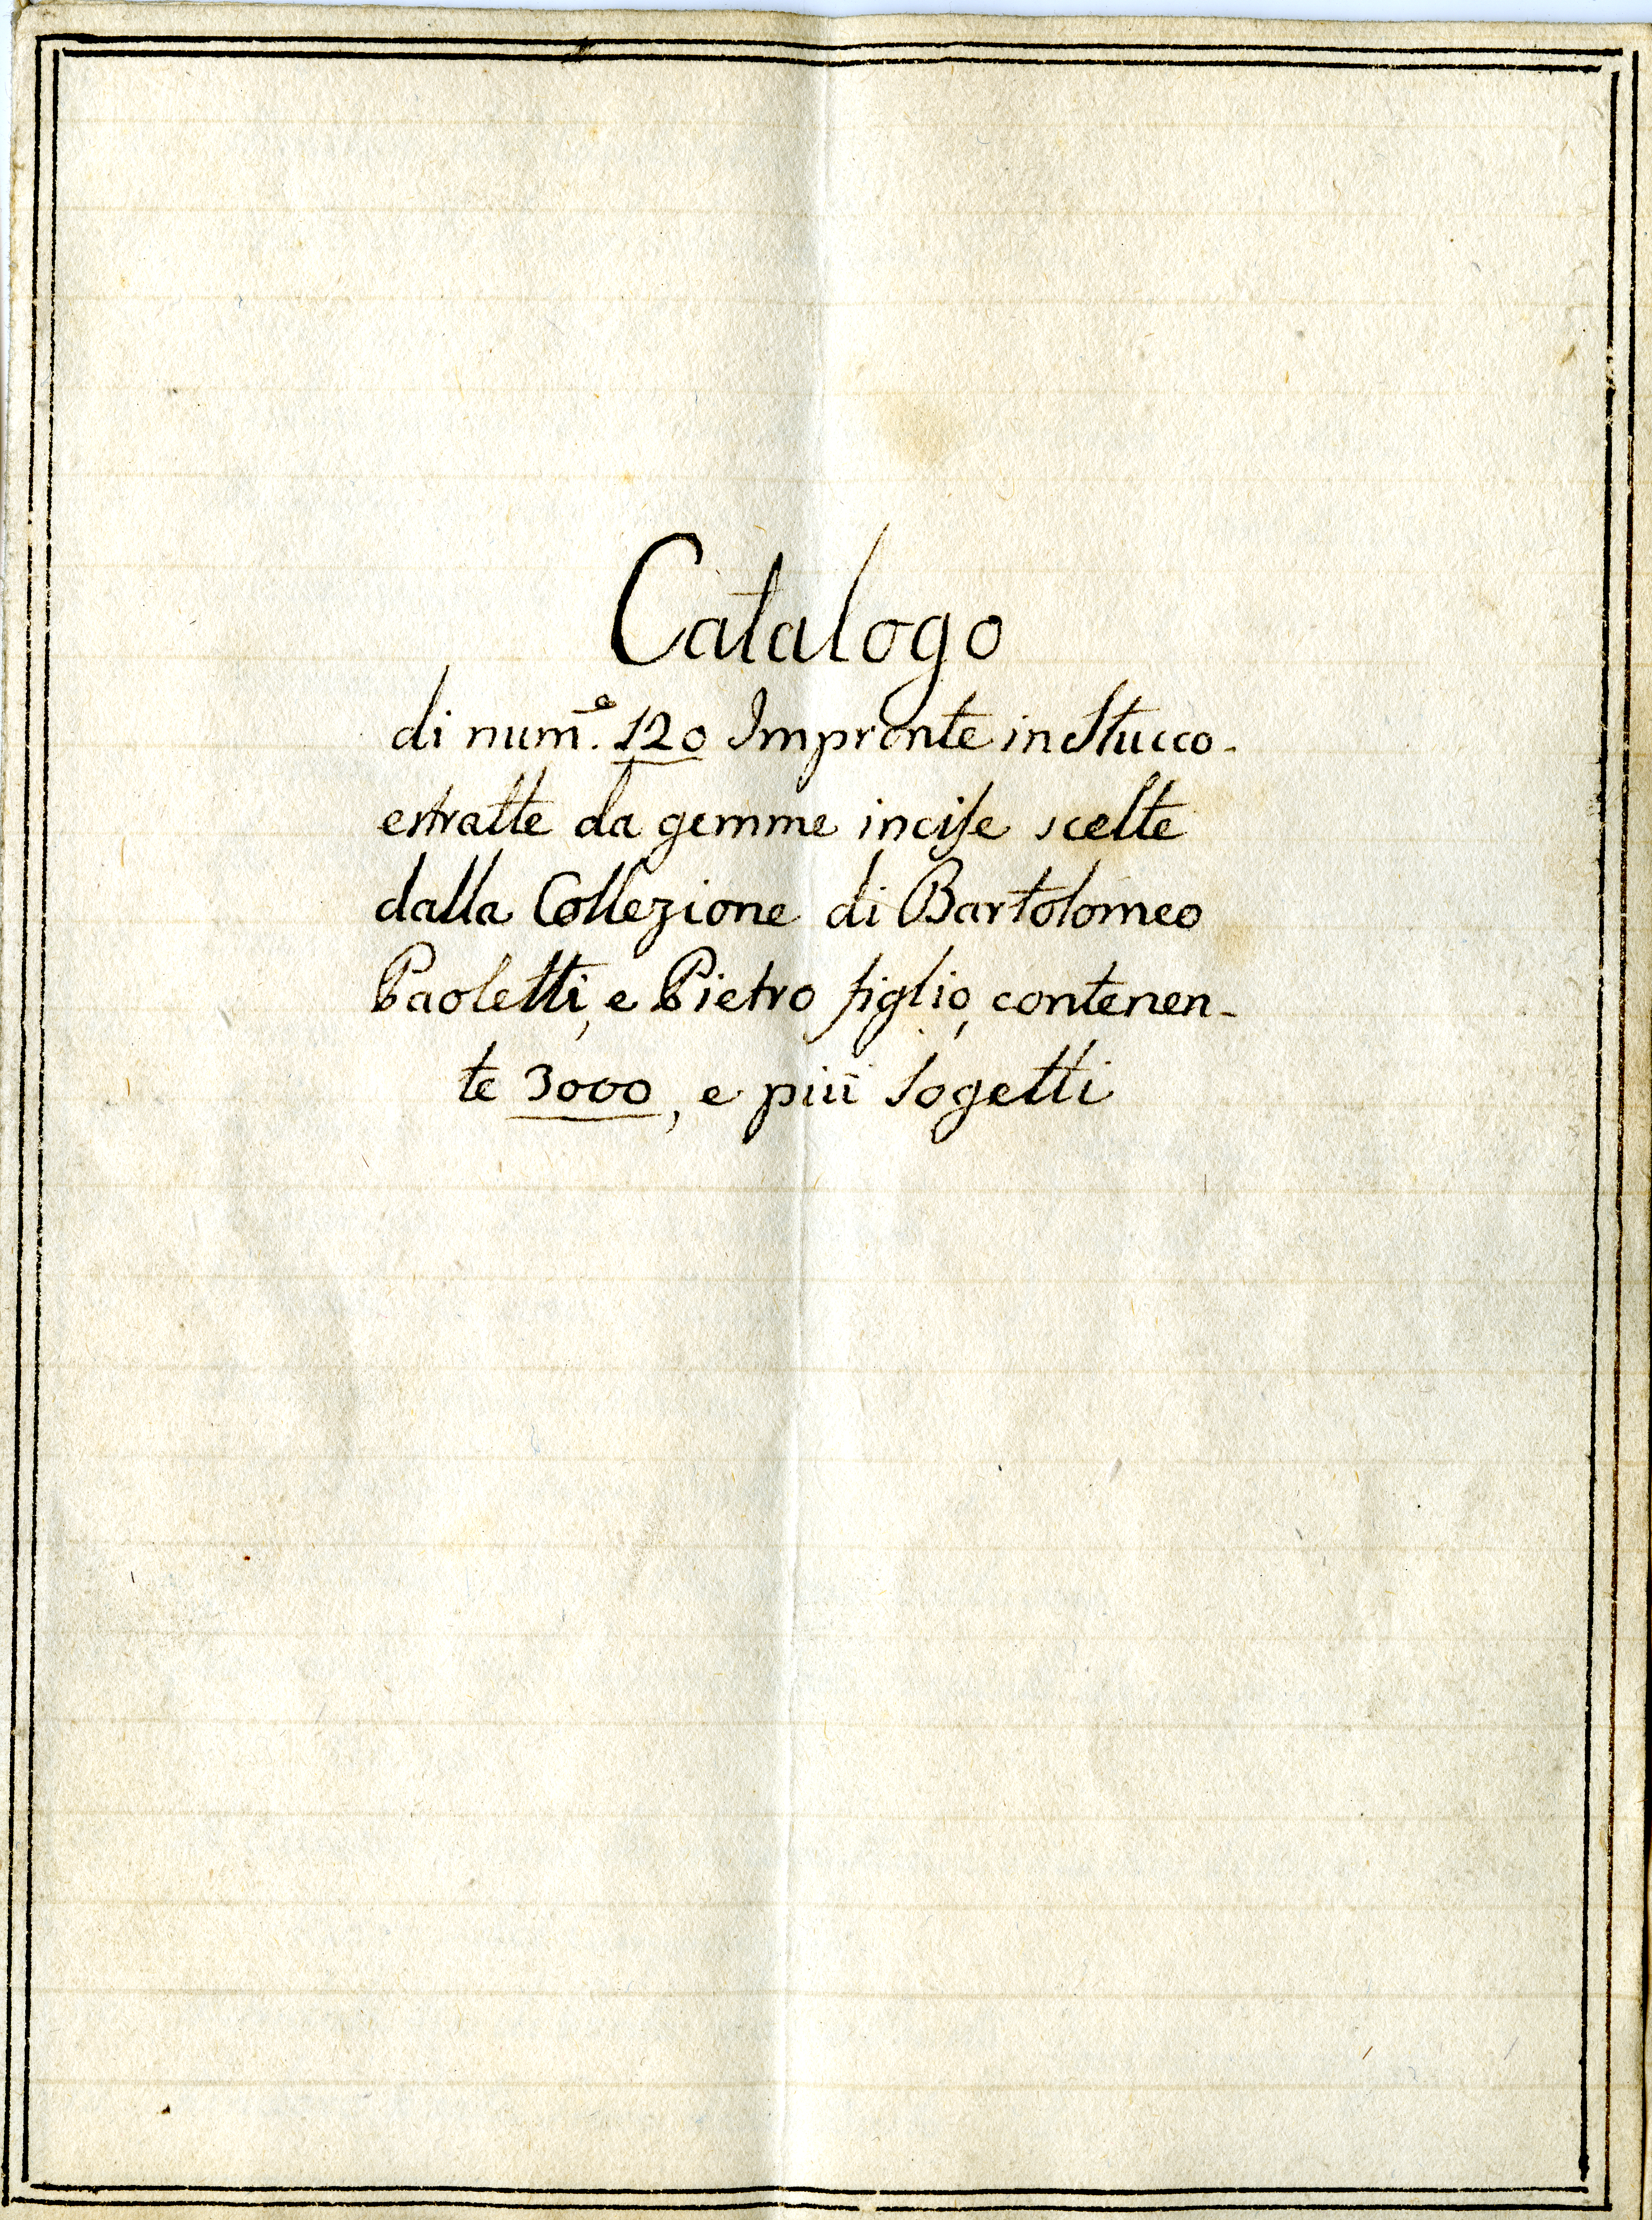 Catalogo
di num.º 120 Impronte in Stucco.
estratte da gemme incise scelte
dalla Collezione di Bartolomeo
Paoletti, e Pietro figlio, contenen-
te 3000, e più sogetti